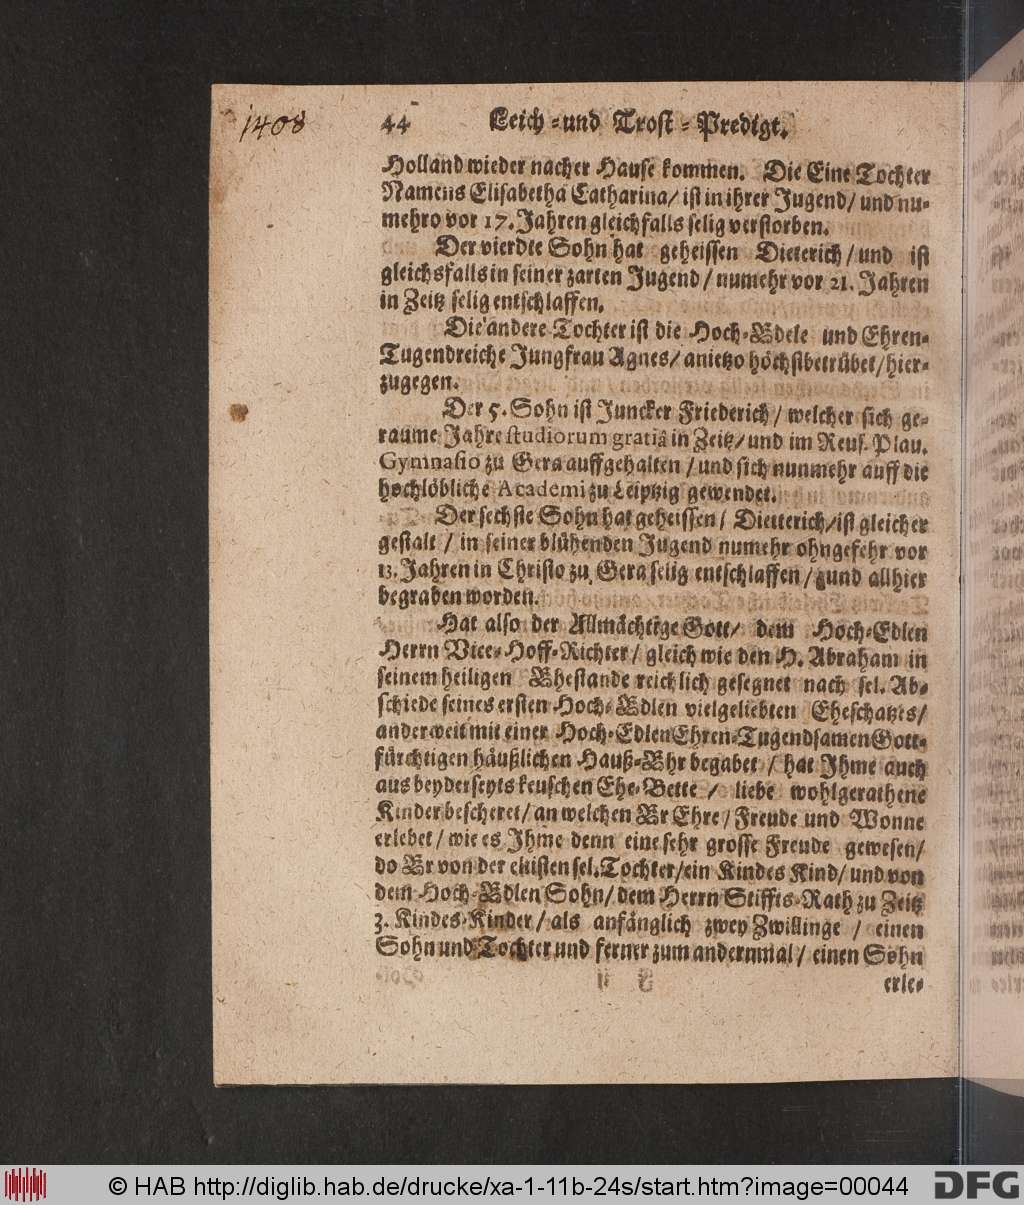 1408
44 Leich-und Trost-Predigt.
Holland wieder nacher Hause kommen. Die Eine Tochter
Namens Elisabetha Catharina/ ist in ihrer Jugend/ und nu-
mehro vor 17. Jahren gleichfalls selig verstorben.
Der vierdte Sohn hat geheissen Dieterich/ und ist
gleichsfalls in seiner zarten Jugend/ numehr vor 21. Jahren
in Zeitz selig entschlaffen.
Die andere Tochter ist die Hoch-Edele und Ehren-
Tugendreiche Jungfrau Agnes/ anietzo höchstbetrübet/ hier-
zugegen.
Der 5. Sohn ist Juncker Friederich/ welcher sich ge-
raume Jahre studiorum gratiâ in Zeitz/ und im Reus. Plau.
Gymnasio zu Gera auffgehalten/ und sich nunmehr auff die
hochlöbliche Academi zu Leiptzig gewendet.
Der sechste Sohn hat geheissen/ Dietterich/ ist gleicher
gestalt/ in seiner blühenden Jugend numehr ohngefehr vor
13. Jahren in Christo zu Gera selig entschlaffen/ und allhier
begraben worden.
Hat also der Allmächtige Gott/ dem Hoch-Edlen
Herrn Vice-Hoff-Richter/ gleich wie den H. Abraham in
seinem heiligen Ehestande reichlich gesegnet nach sel. Ab-
schiede seines ersten Hoch-Edlen vielgeliebten Eheschatzes/
anderweit mit einer Hoch-Edlen Ehren-Tugendsamen Gott-
fürchtigen häußlichen Hauß-Ehr begabet/ hat Ihme auch
aus beyderseyts keuschen Ehe-Bette/ liebe wohlgerathene
Kinder bescheret/ an welchen Er Ehre/ Freude und Wonne
erlebet/ wie es Ihme denn eine sehr grosse Freude gewesen/
do Er von der eltisten sel. Tochter/ ein Kindes Kind/ und von
dem Hoch-Edlen Sohn/ dem Herrn Stiffts-Rath zu Zeitz
3. Kindes-Kinder/ als anfänglich zwey Zwillinge/ einen
Sohn und Tochter und ferner zum andernmal/ einen Sohn
erle-
© HAB http://diglib.hab.de/drucke/xa-1-11b-24s/start.htm?image=00044
DFG